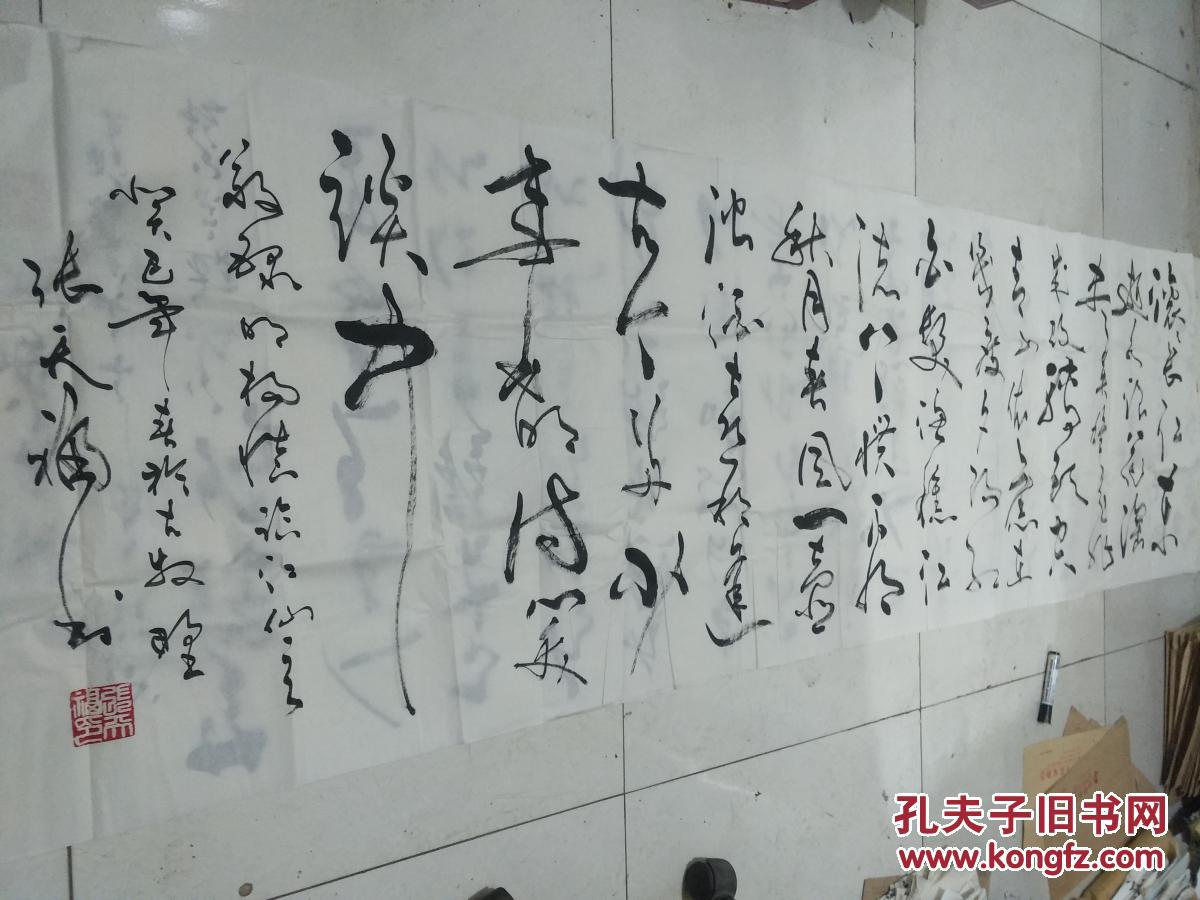 滚〻长江东
逝水浪花淘
尽英雄是非
成败转头空
青山依旧在
几度夕阳红
白髮渔樵江
渚上惯看
秋月春风一壶
浊酒喜相逢
古今多少
事都付笑
谈中
敬录明杨慎临江仙
癸巳年春於古牧野
张天福书
張天福印
孔夫子旧书网
www.kongfz.com